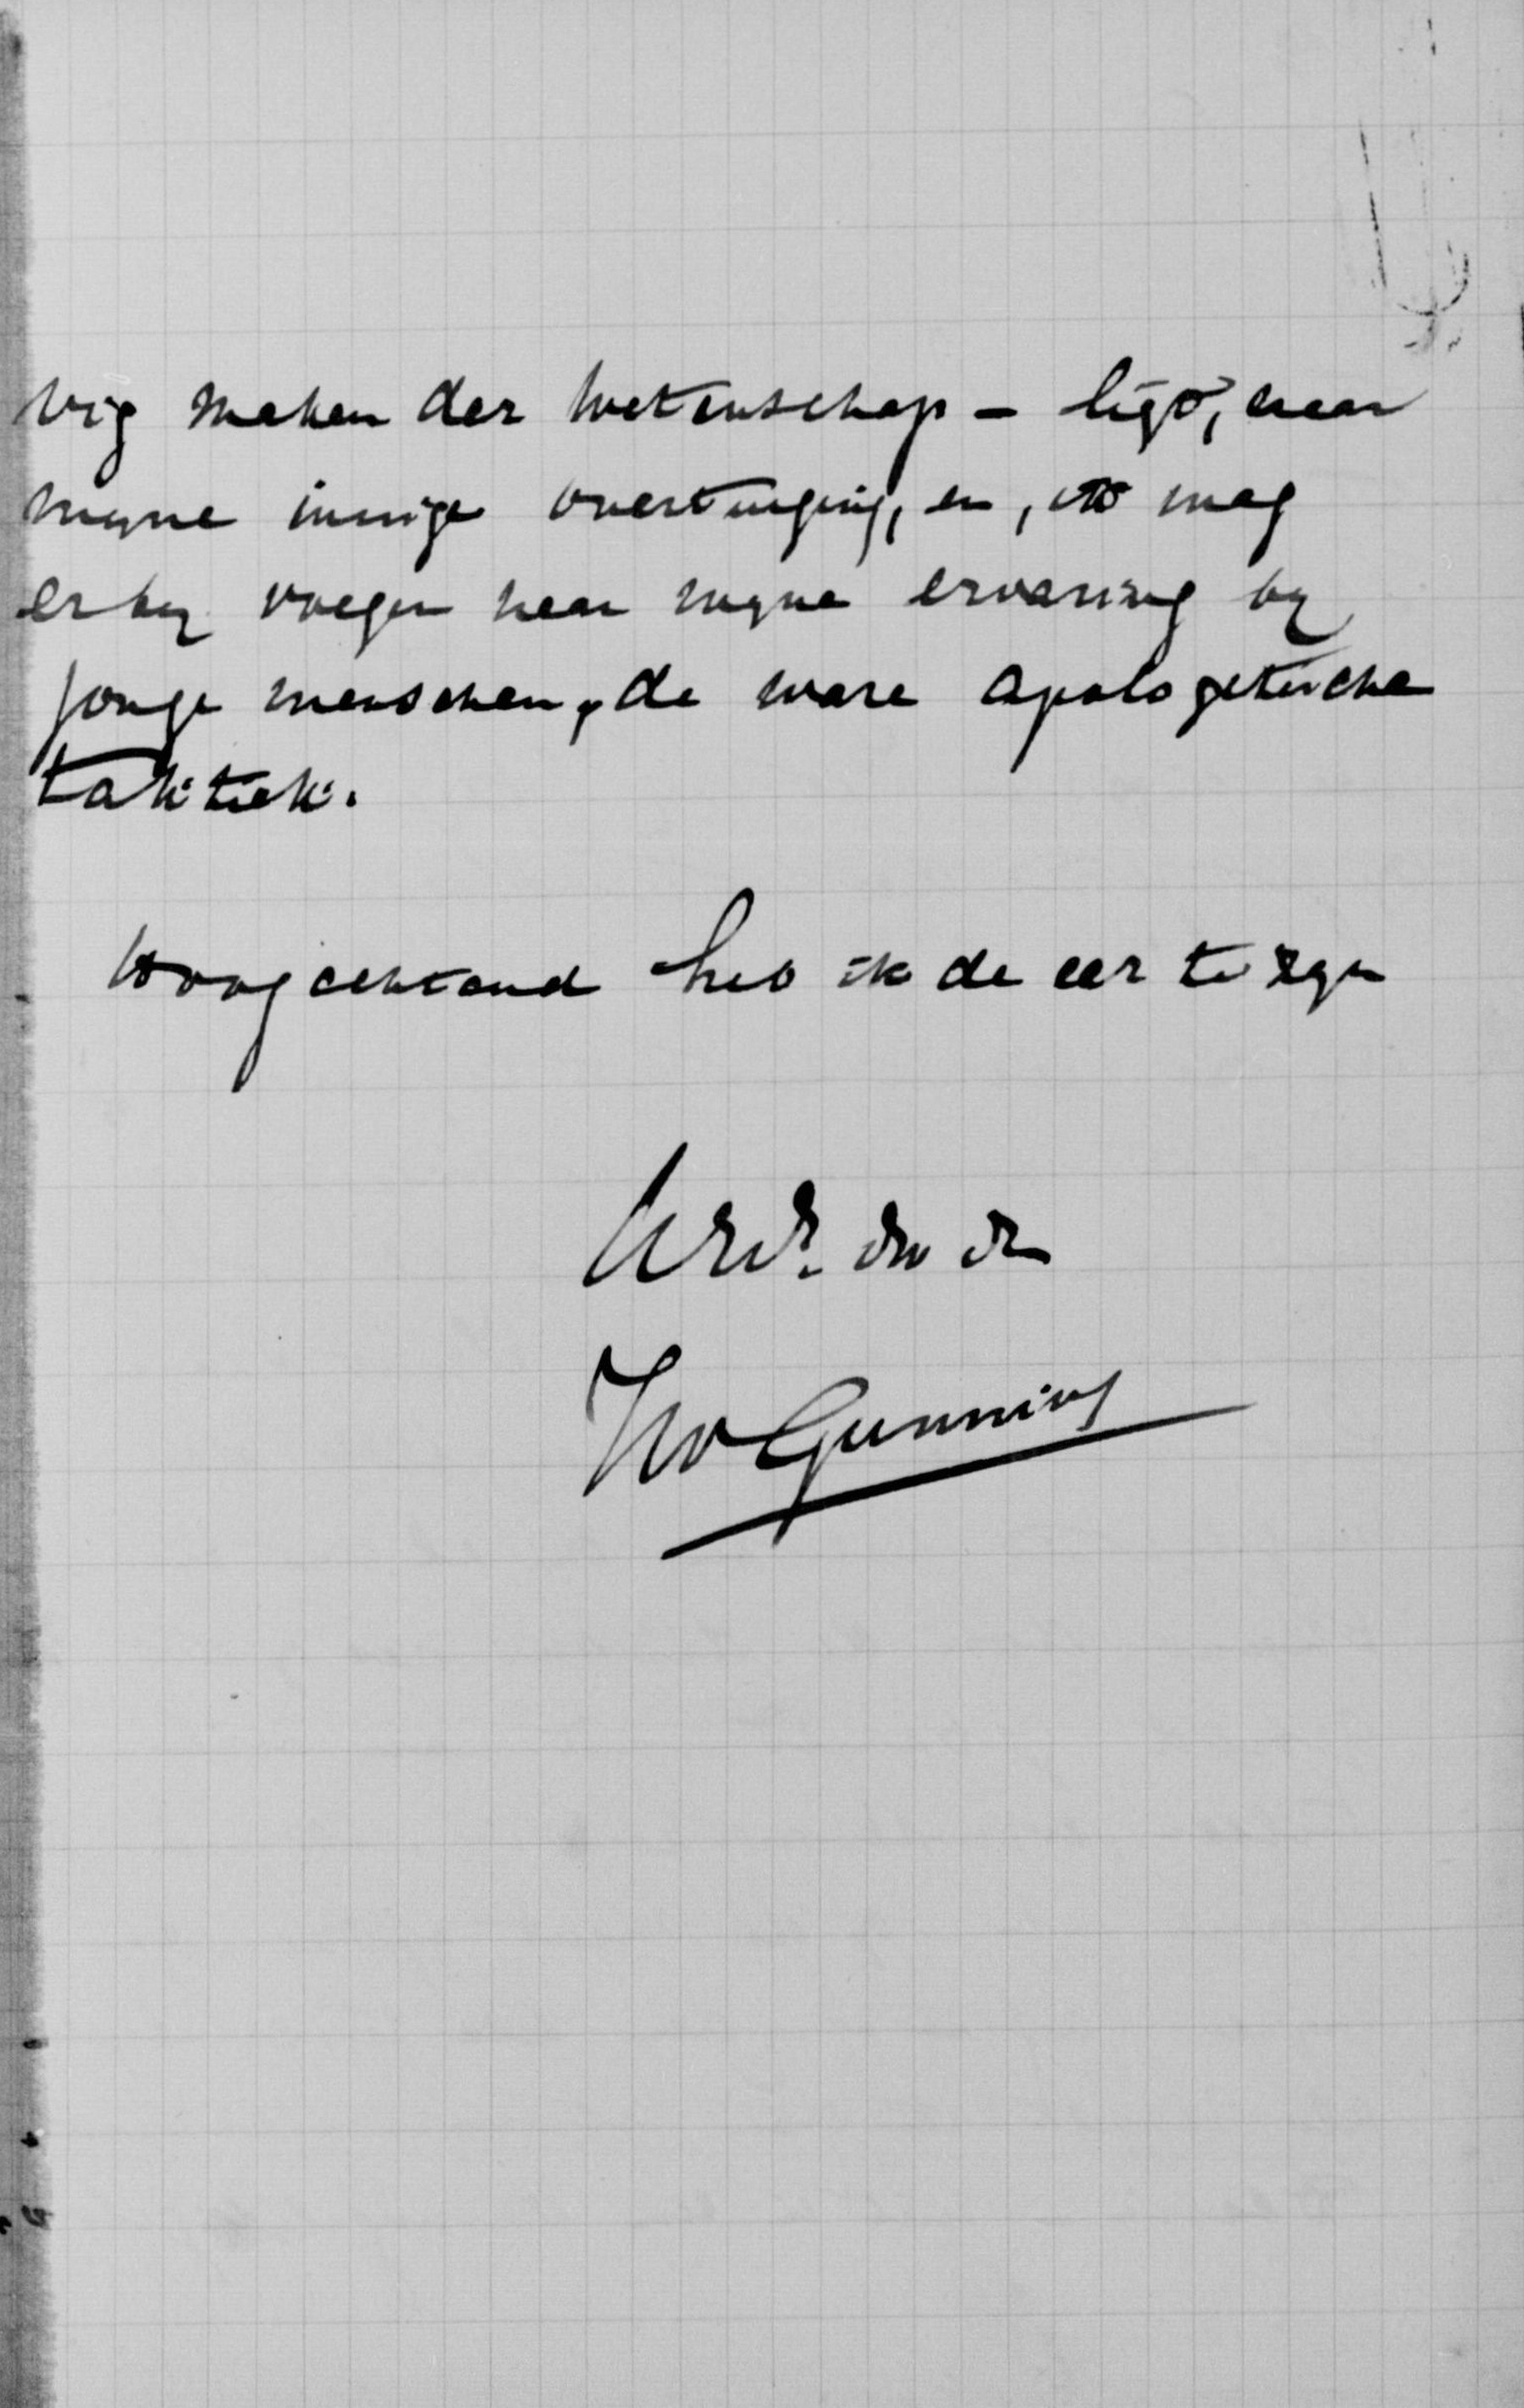 vrij maken der wetenschap – ligt, naar
myne innige overtuiging, en, ik mag
erby voegen naar myne ervaring by
jonge menschen, de ware apologetische
taktiek.
Hoogachtend heb ik de eer te zyn
UEd. dw dr
JW Gunning